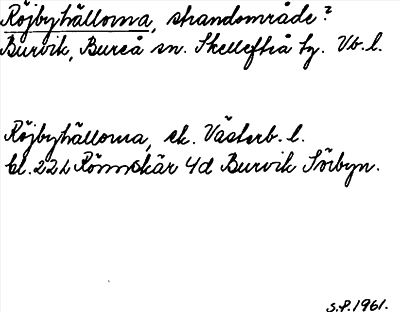 Röjbyhällorna, strandområde?
Burvik, Bureå sn. Skellefteå tg. Vb. l.
Röjbyhällorna, ek. Västerb. l.
bl. 22L Rönnskär 4d Burvik Sörbyn.
S.P. 1961.